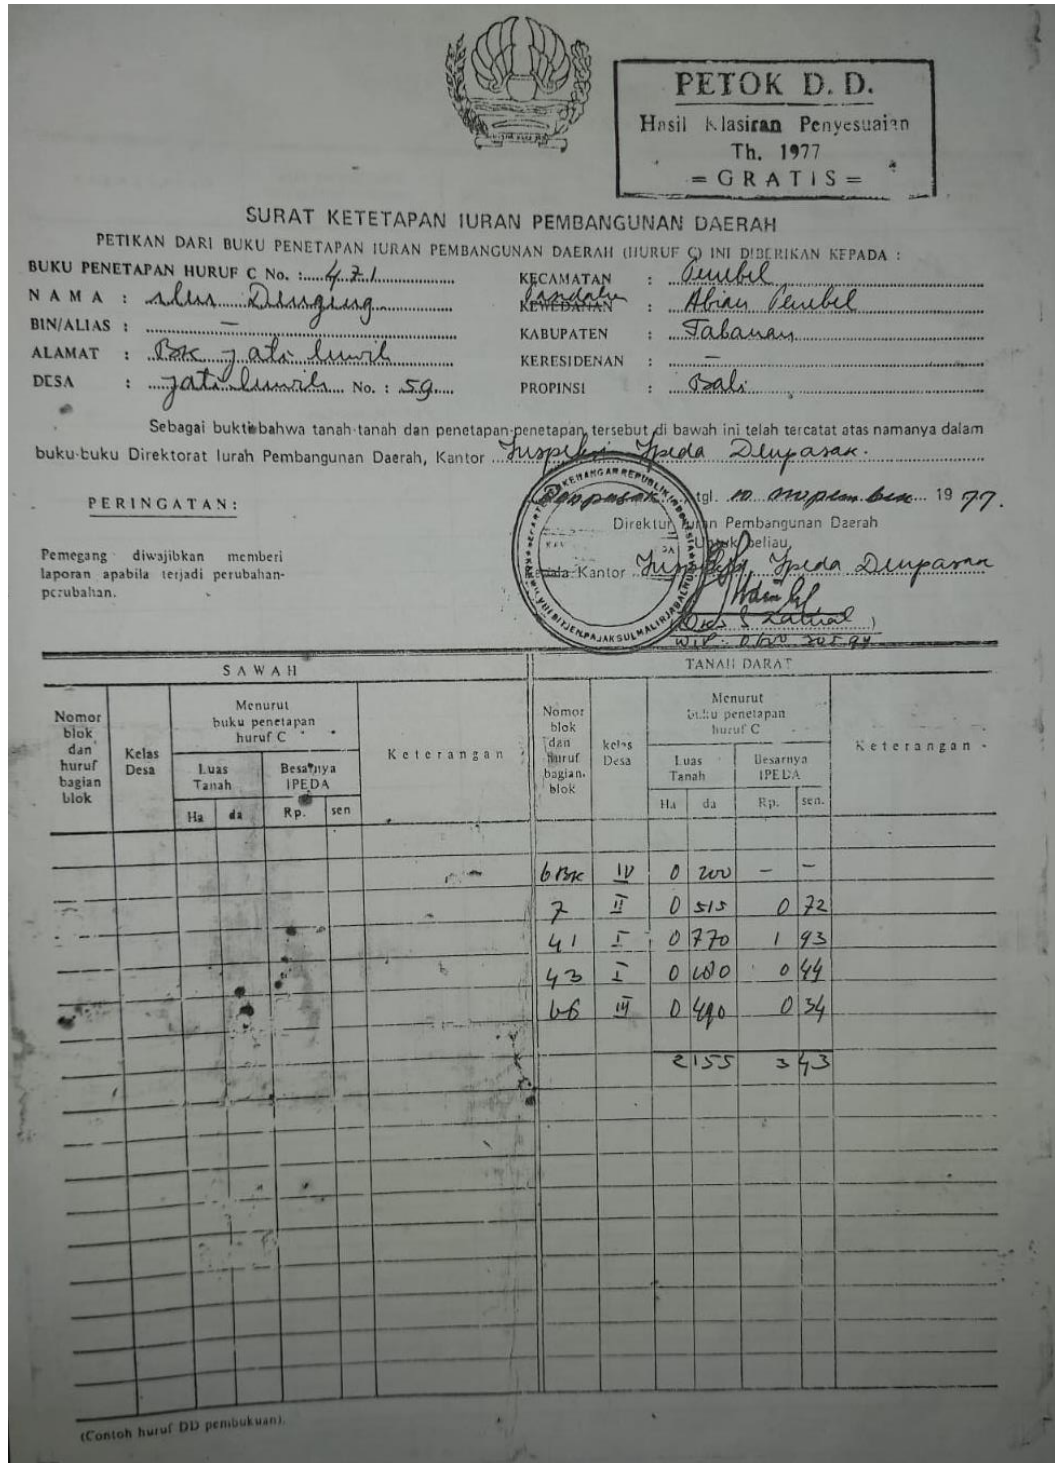 PETOK D. D.
Hasil Klasiran Penyesuaian
Th. 1977
= GRATIS =
SURAT KETETAPAN IURAN PEMBANGUNAN DAERAH
PETIKAN DARI BUKU PENETAPAN IURAN PEMBANGUNAN DAERAH (HURUF C) INI DIBERIKAN KEPADA :
BUKU PENETAPAN HURUF C No. : 471
NAMA :
BIN/ALIAS : —
ALAMAT : Bk jatiluwih
DESA : jatiluwih No. : 59
KECAMATAN : Penebel
KEWEDANAN : Abian Penebel
KABUPATEN : Tabanan
KERESIDENAN : —
PROPINSI : Bali
Sebagai bukti bahwa tanah-tanah dan penetapan-penetapan tersebut di bawah ini telah tercatat atas namanya dalam
buku-buku Direktorat Iurah Pembangunan Daerah, Kantor Inspeksi Ipeda Denpasar.
Denpasar, tgl. 10 nopember 1977.
PERINGATAN:
Direktur Iuran Pembangunan Daerah
Untuk beliau,
Pemegang diwajibkan memberi
laporan apabila terjadi perubahan-
perubahan.
Kepala Kantor Inspeksi Ipeda Denpasar
SAWAH
TANAH DARAT
Nomor blok dan huruf bagian blok
Kelas Desa
Menurut buku penetapan huruf C
Luas Tanah
Besarnya IPEDA
Ha da Rp. sen
Keterangan
Nomor blok dan huruf bagian. blok
kelas Desa
Menurut buku penetapan huruf C
Luas Tanah
Besarnya IPEDA
Ha da Rp. sen.
Keterangan
6 BK IV 0 200 - -
7 II 0 515 0 72
41 I 0 770 1 93
43 I 0 180 0 44
66 III 0 490 0 34
2 155 3 43
(Contoh huruf DD pembukuan).